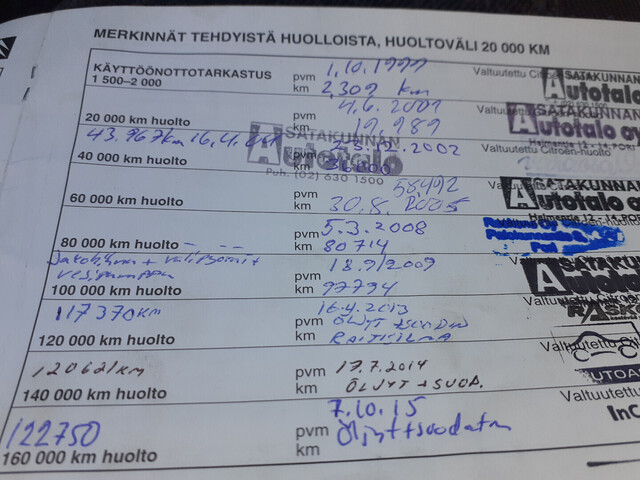 MERKINNÄT TEHDYISTÄ HUOLLOISTA, HUOLTOVÄLI 20 000 KM
KÄYTTÖÖNOTTOTARKASTUS
1 500–2 000
pvm 1.10.1999
km 2,309 km
Valtuutettu Citroën
SATAKUNNAN
Autotalo
4.6.2001
20 000 km huolto
km 19989
Autotalo oy
43.967km 16.4.
SATAKUNNAN
Autotalo
Puh. (02) 630 1500
40 000 km huolto
pvm 2002
km
Valtuutettu Citroën-huolto
58492
60 000 km huolto
pvm
km 30.8. 2005
SATAKUNNAN
Autotalo oy
Helmentie 12 - 14, PORI
80 000 km huolto
pvm 5.3.2008
km 80714
Pori
Jakohihna +
vesipumppu
100 000 km huolto
pvm 18.9/2009
km 97794
SATAKUNNAN
Valtuutettu
117370KM
120 000 km huolto
16.4.2013
pvm ÖLJYT +
km RAITISILMA
RASK
Valtuutettu Cit
120621KM
140 000 km huolto
pvm 17.7.2014
km ÖLJYT + SUOD.
AUTOAS
Valtuutettu Cit
122750
160 000 km huolto
7.10.15
pvm Öljyt+suodatin
km
InC